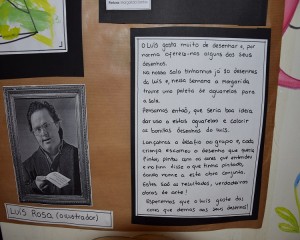 O Luís gosta muito de desenhar e, por
norma oferece-nos alguns dos seus
desenhos.
Na nossa sala tínhamos já 50 desenhos
do Luís e, nessa semana a margarida
trouxe uma paleta de aguarelas para
a sala.
Pensamos então, que seria boa ideia
dar uso a estas aguarelas e colorir
os bonitos desenhos do Luís.
Lançamos o desafio ao grupo e, cada
criança, escolheu o desenho que queria
pintar, pintou com as cores que entendeu
e no fim disse o que tinha pintado,
dando nome a esta obra conjunta.
Estes são os resultados, verdadeiras
obras de arte!
Esperemos que o Luís goste das
cores que demos aos seus desenhos!
LUÍS ROSA (ilustrador)